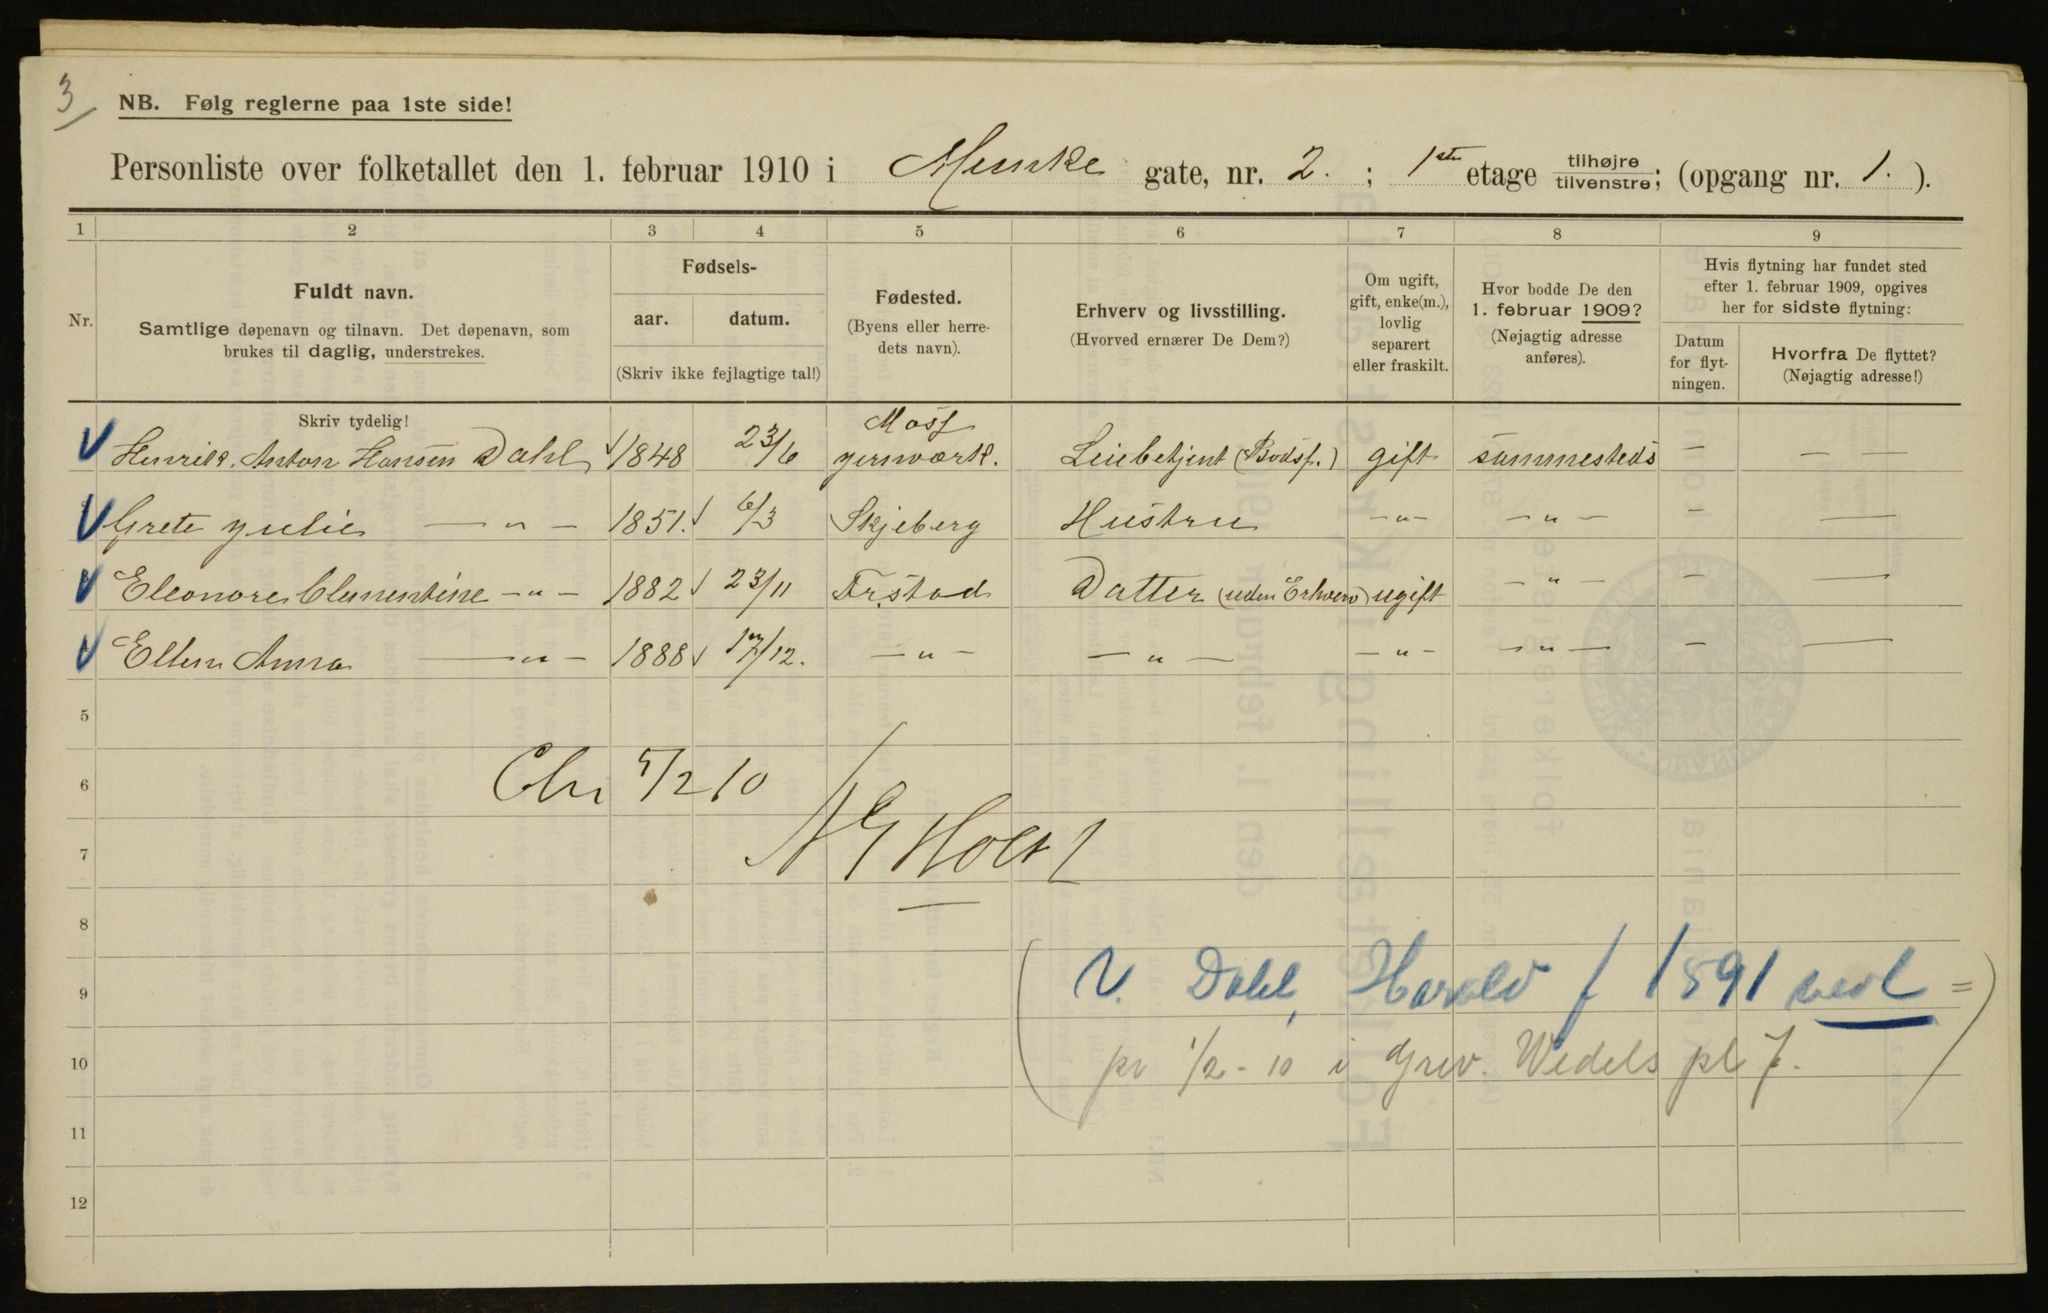 3
NB. Følg reglerne paa 1ste side!
Personliste over folketallet den 1. februar 1910 i Munke gate, nr. 2. ; 1ste etage tilhøjre tilvenstre; (opgang nr. 1. ).
1 2 3 4 5 6 7 8 9
Nr.
Fuldt navn.
Samtlige døpenavn og tilnavn. Det døpenavn, som
brukes til daglig, understrekes.
Fødsels-
aar. datum.
(Skriv ikke fejlagtige tal!)
Fødested.
(Byens eller herre-
dets navn).
Erhverv og livsstilling.
(Hvorved ernærer De Dem?)
Om ugift,
gift, enke(m.),
lovlig
separert
eller fraskilt.
Hvor bodde De den
1. februar 1909?
(Nøjagtig adresse
anføres).
Hvis flytning har fundet sted
efter 1. februar 1909, opgives
her for sidste flytning:
Datum
for flyt-
ningen.
Hvorfra De flyttet?
(Nøjagtig adresse!)
Skriv tydelig!
Henrik Anton Hansen Dahl 1848 23/6 Moss jernværk. Leiebetjent (Bodsf.) gift sammesteds — — —
Grete Julie — " — 1851. 6/3 Skjeberg Hustru — " — — " — — —
Eleonore Clementine — " — 1882 23/11 Frstad Datter (uden Erhverv) ugift — " — — —
Ellen Anna — " — 1888 17/12. — " — — " — — " — — " — — —
5
6
Chr 5/2 10
7
N E Holst
8
9
(V. Dahl, Harald f 1891 vedl =
10
pr 1/2 - 10 i Grev. Wedels pl 7. )
11
12